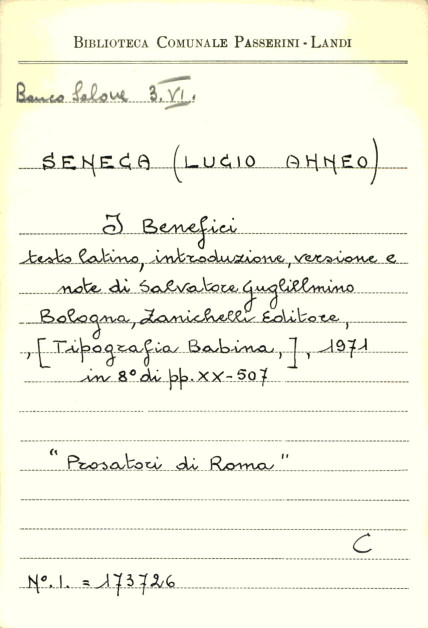 BIBLIOTECA COMUNALE PASSERINI-LANDI
Banco Salone 3.VI.
SENECA (LUCIO ANNEO)
I Benefici
testo latino, introduzione, versione e
note di Salvatore Guglillmino
Bologna, Zanichelli Editore,
, [Tipografia Babina,], 1971
in 8° di pp. XX-507
"Prosatori di Roma"
C
N°. I. = 173726